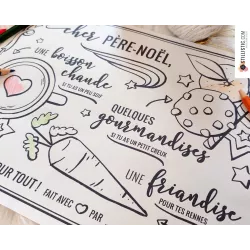 cher PÈRE-NOËL,
UNE boisson
chaude
SI TU AS UN PEU SOIF
QUELQUES
gourmandises
SI TU AS UN PETIT CREUX
UNE friandise
POUR TES RENNES
POUR TOUT !
FAIT AVEC ♥ PAR